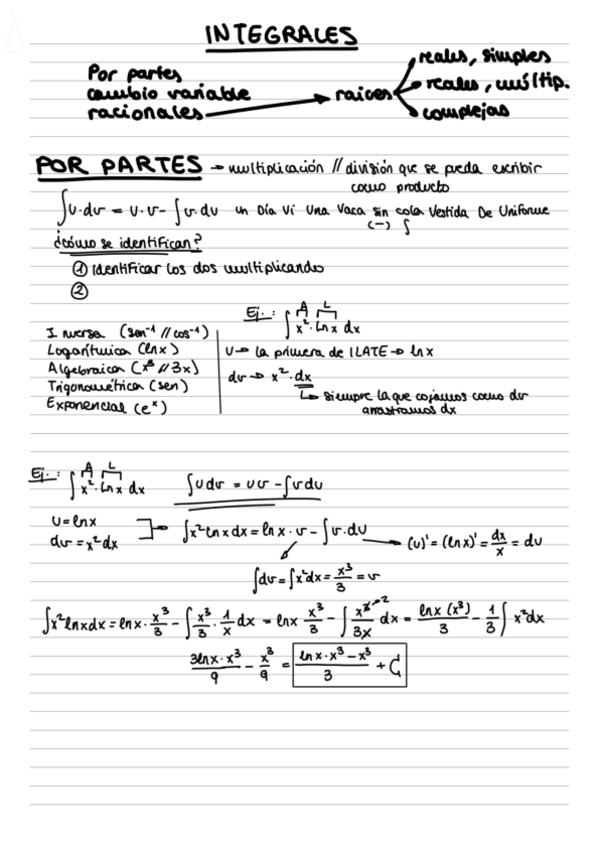 INTEGRALES
Por partes
cambio variable
racionales → raíces
reales, simples
reales, múltip.
complejas
POR PARTES → multiplicación // división que se pueda escribir
como producto
∫u·dv = u·v - ∫v·du un Día Vi Una Vaca sin cola Vestida De Uniforme
(-) ∫
¿cómo se identifican?
① Identificar los dos multiplicando
②
Ej.: ∫x²·lnx dx
A L
Inversa (sen⁻¹ // cos⁻¹)
Logarítmica (lnx)
Algebraica (x³ // 3x)
Trigonométrica (sen)
Exponencial (eˣ)
u → la primera de ILATE → lnx
dv → x²·dx
↳ siempre la que cojamos como dv
arrastramos dx
Ej.: ∫x²·lnx dx ∫udv = uv - ∫vdu
A L
u = lnx
dv = x²dx
→ ∫x²lnxdx = lnx·v - ∫v·du → (u)' = (lnx)' = dx/x = du
∫dv = ∫x²dx = x³/3 = v
∫x²lnxdx = lnx·x³/3 - ∫x³/3·1/x dx = lnx x³/3 - ∫x³⁻²/3x dx = lnx(x³)/3 - 1/3∫x²dx
3lnx·x³/9 - x³/9 = lnx·x³-x³/3 + C